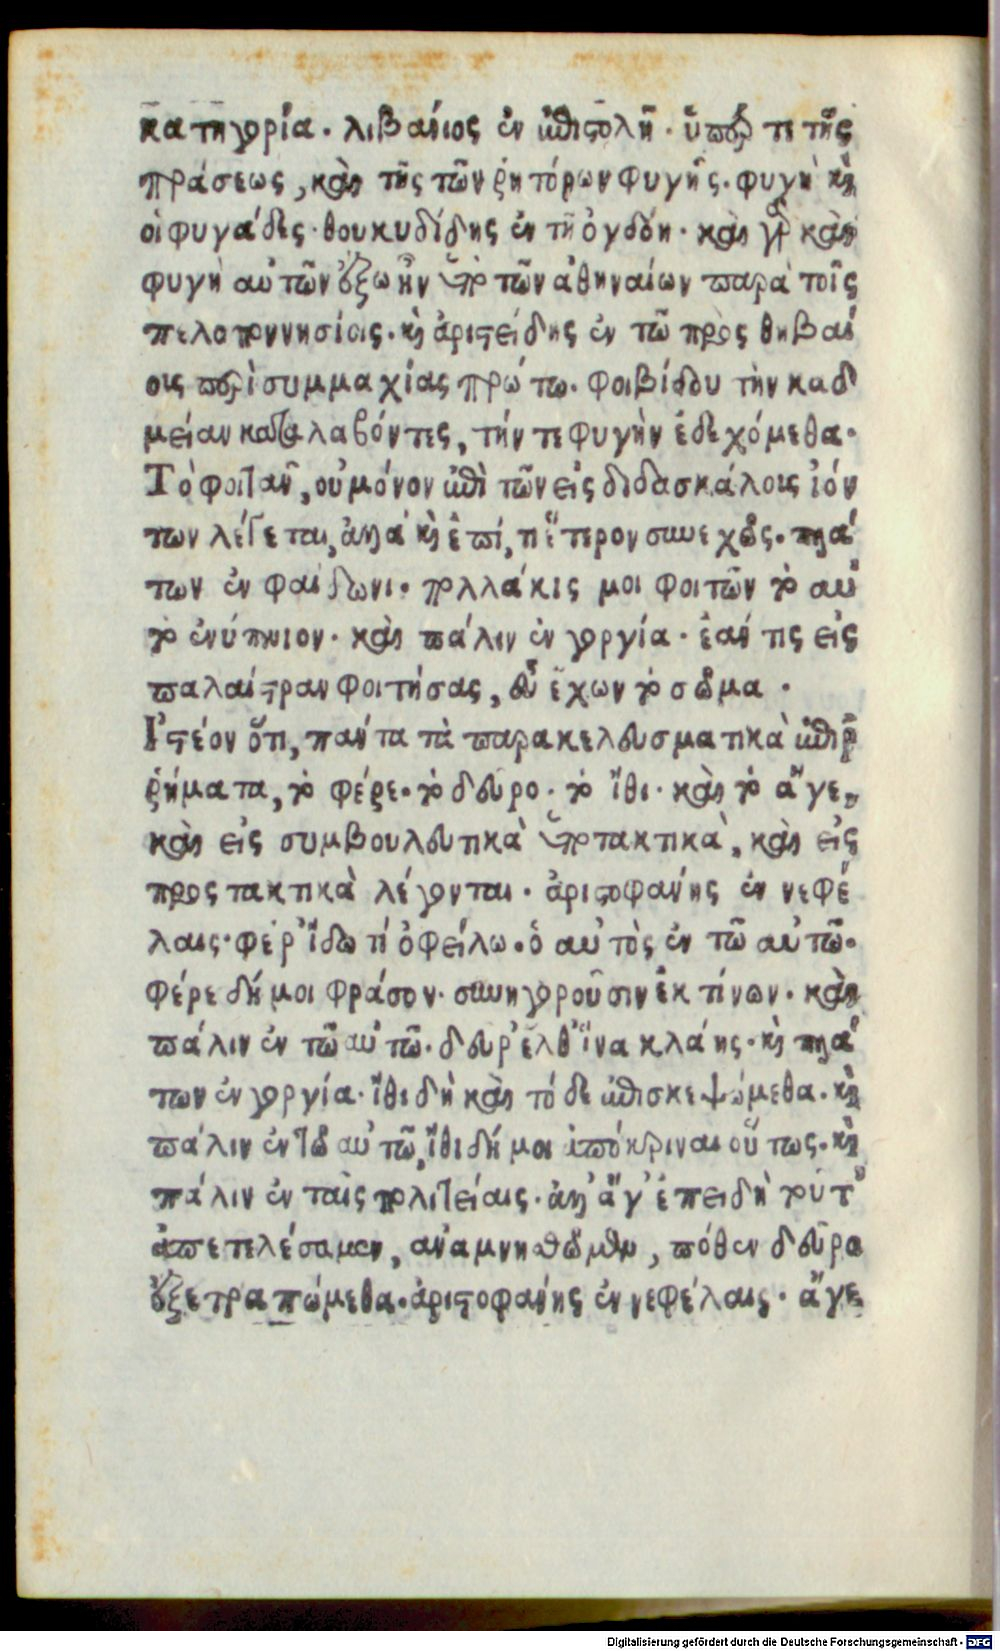 κατηγορία. λιβανίος ἐν ἐπιστολῆ. ὕπερ τι τῆς
πράσεως, καὶ τῆς τῶν ῥητόρων φυγῆς. φυγὴ καὶ
οἱ φυγάδες. θουκυδίδης ἐν τῆ ὀγδόη. καὶ γὰρ καὶ
φυγὴ αὐτῶν ἔξω ἦν ὑπὸ τῶν ἀθηναίων παρὰ τοῖς
πελοποννησίοις. καὶ ἀριστείδης ἐν τῶ πρὸς θηβαί
οις περὶ συμμαχίας πρώτω. φοιβίδου τὴν καδ
μείαν καταλαβόντες, τήν τε φυγὴν ἐδεχόμεθα.
Τὸ φοιτᾶν, οὐ μόνον ἐπὶ τῶν εἰς διδασκάλους ἰόν
των λέγεται, ἀλλὰ καὶ ἐπί, τι ἕτερον συνεχῶς. πλά
των ἐν φαίδωνι. πολλάκις μοι φοιτῶν τὸ αὐ
τὸ ἐνύπνιον. καὶ πάλιν ἐν γοργία. ἐάν τις εἰς
παλαίστραν φοιτήσας, εὖ ἔχων τὸ σῶμα.
Ἰστέον ὅτι, πάντα τὰ παρακελευσματικὰ ἐπιρ
ῥήματα, τὸ φέρε. τὸ δεύρο. τὸ ἴθι. καὶ τὸ ἄγε,
καὶ εἰς συμβουλευτικὰ ὑποτακτικὰ, καὶ εἰς
προστακτικὰ λέγονται. ἀριστοφάνης ἐν νεφέ
λαις. φέρ' ἴδω τί ὀφείλω. ὁ αὐτὸς ἐν τῶ αὐτῶ.
φέρε δή μοι φράσον. συνηγοροῦσιν ἐκ τίνων. καὶ
πάλιν ἐν τῶ αὐτῶ. δεῦρ' ἐλθ' ἵνα κλάης. καὶ πλά
των ἐν γοργία. ἴθι δὴ καὶ τόδε ἐπισκεψώμεθα. καὶ
πάλιν ἐν τῶ αὐτῶ, ἴθι δή μοι ἀπόκριναι οὕτως. καὶ
πάλιν ἐν ταῖς πολιτείαις. ἀλλ' ἄγ' ἐπειδὴ τοῦτ'
ἀπετελέσαμεν, ἀναμνησθῶμεν, πόθεν δεῦρο
ἐξετραπώμεθα. ἀριστοφάνης ἐν νεφέλαις. ἄγε
Digitalisierung gefördert durch die Deutsche Forschungsgemeinschaft - DFG